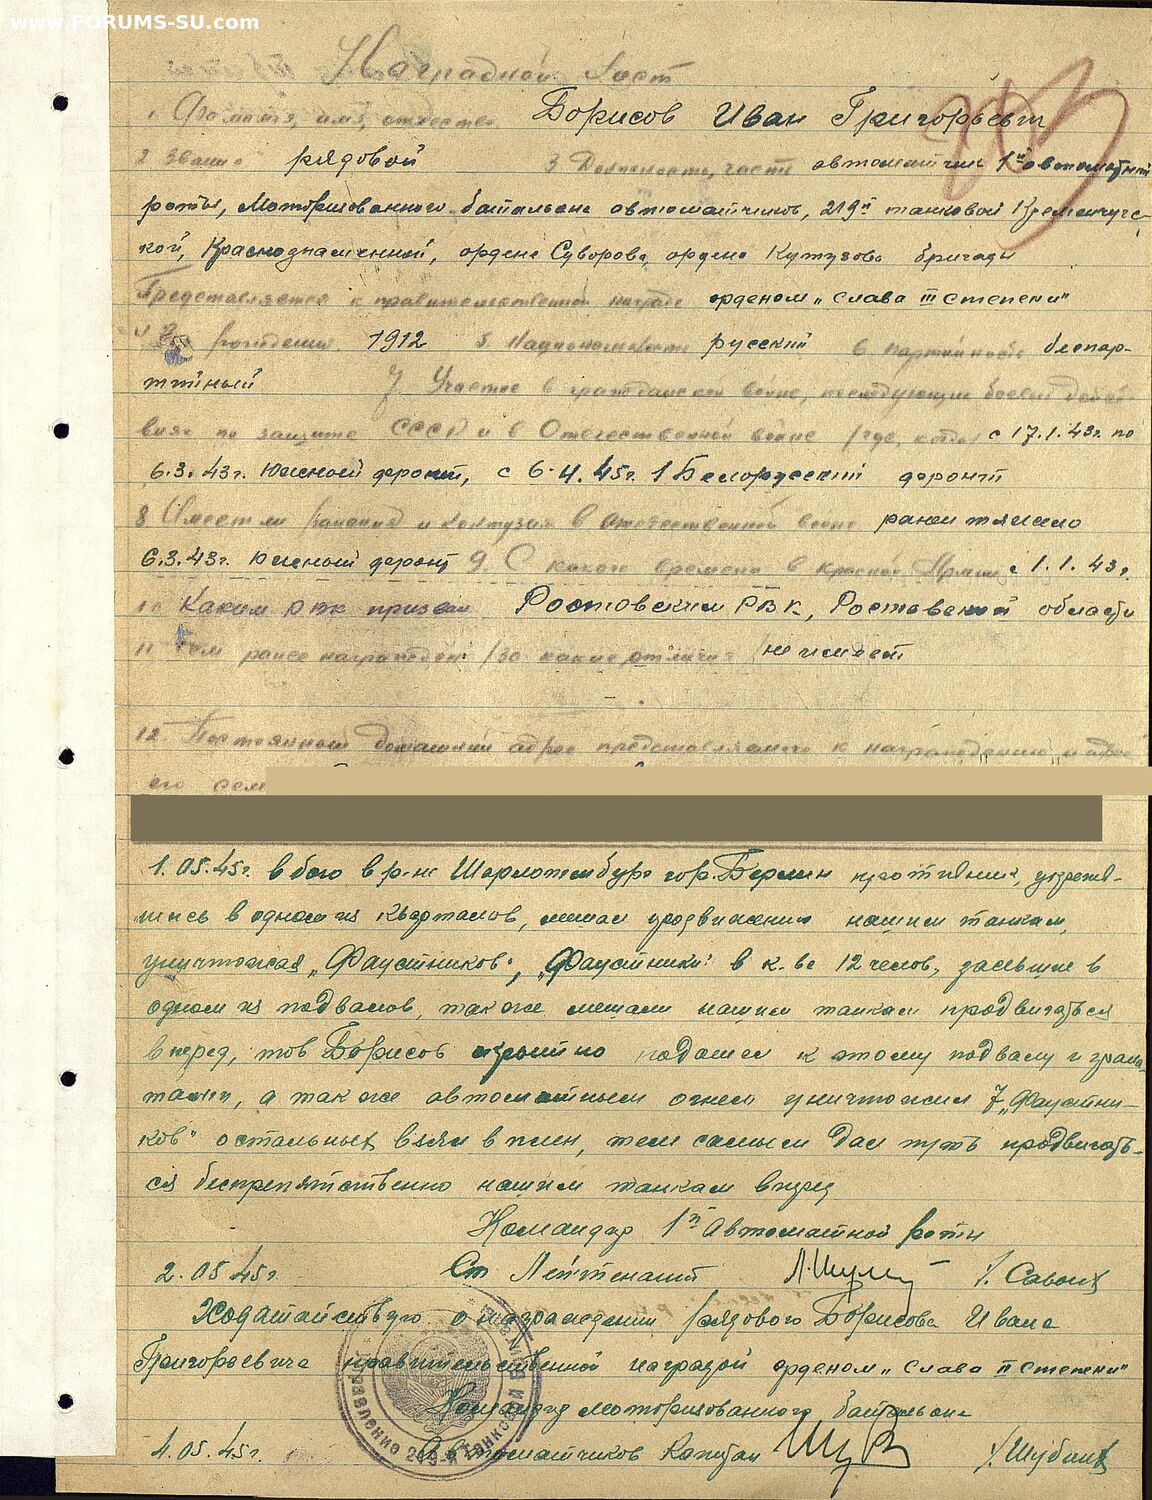 www.FORUMS-SU.com
Наградной лист
1 Фамилия, имя, отчество Борисов Иван Григорьевич
2 Звание рядовой 3 Должность, часть автоматчик 1й автоматной
роты, Моторизованного батальона автоматчиков, 219й танковой Кременчугс-
кой, Краснознаменной, ордена Суворова, ордена Кутузова бригады
Представляется к правительственной награде орденом „Слава III степени"
рождения 1912 5. Национальность русский 6 партийность беспар-
тийный 7. Участие в гражданской войне, последующих боевых дейст-
виях по защите СССР и в Отечественной войне /где, когда/ с 17.1.43г. по
6.3.43г. Южный фронт, с 6.4.45г. 1 Белорусский фронт
8 Имеет ли ранения и контузия в отечественной войне ранен тяжело
6.3.43г. Южный фронт 9. С какого времени в красной Армии с 1.1.43г.
10 Каким РВК призван Ростовским РВК, Ростовской области
11 Чем ранее награжден /за какие отличия не имеет
12 Постоянный домашний адрес представляемого к награждению и адрес
его сем
1.05.45г. в бою в р-не Шарлотембург гор. Берлин противник, укрепи-
лись в одном из кварталов, мешал продвижению нашим танкам,
уничтожая „Фаустников", „Фаустники" в к-ве 12 челов, засевшие в
одном из подвалов, также мешали нашим танкам продвигаться
вперед, тов Борисов скрытно подошел к этому подвалу и грана-
тами, а так же автоматным огнем уничтожил 7 „Фаустни-
ков" остальных взял в плен, тем самым дал путь продвигать-
ся беспрепятственно нашим танкам вперед
Командир 1й Автоматной роты
2.05.45г. Ст Лейтенант /Савоих
Ходатайствую о награждении рядового Борисова Ивана
Григорьевича правительственной наградой орденом „Слава II степени"
Командир моторизованного батальона
4.05.45г. Автоматчиков Капитан /Шубин
Управление 219-й Танковой